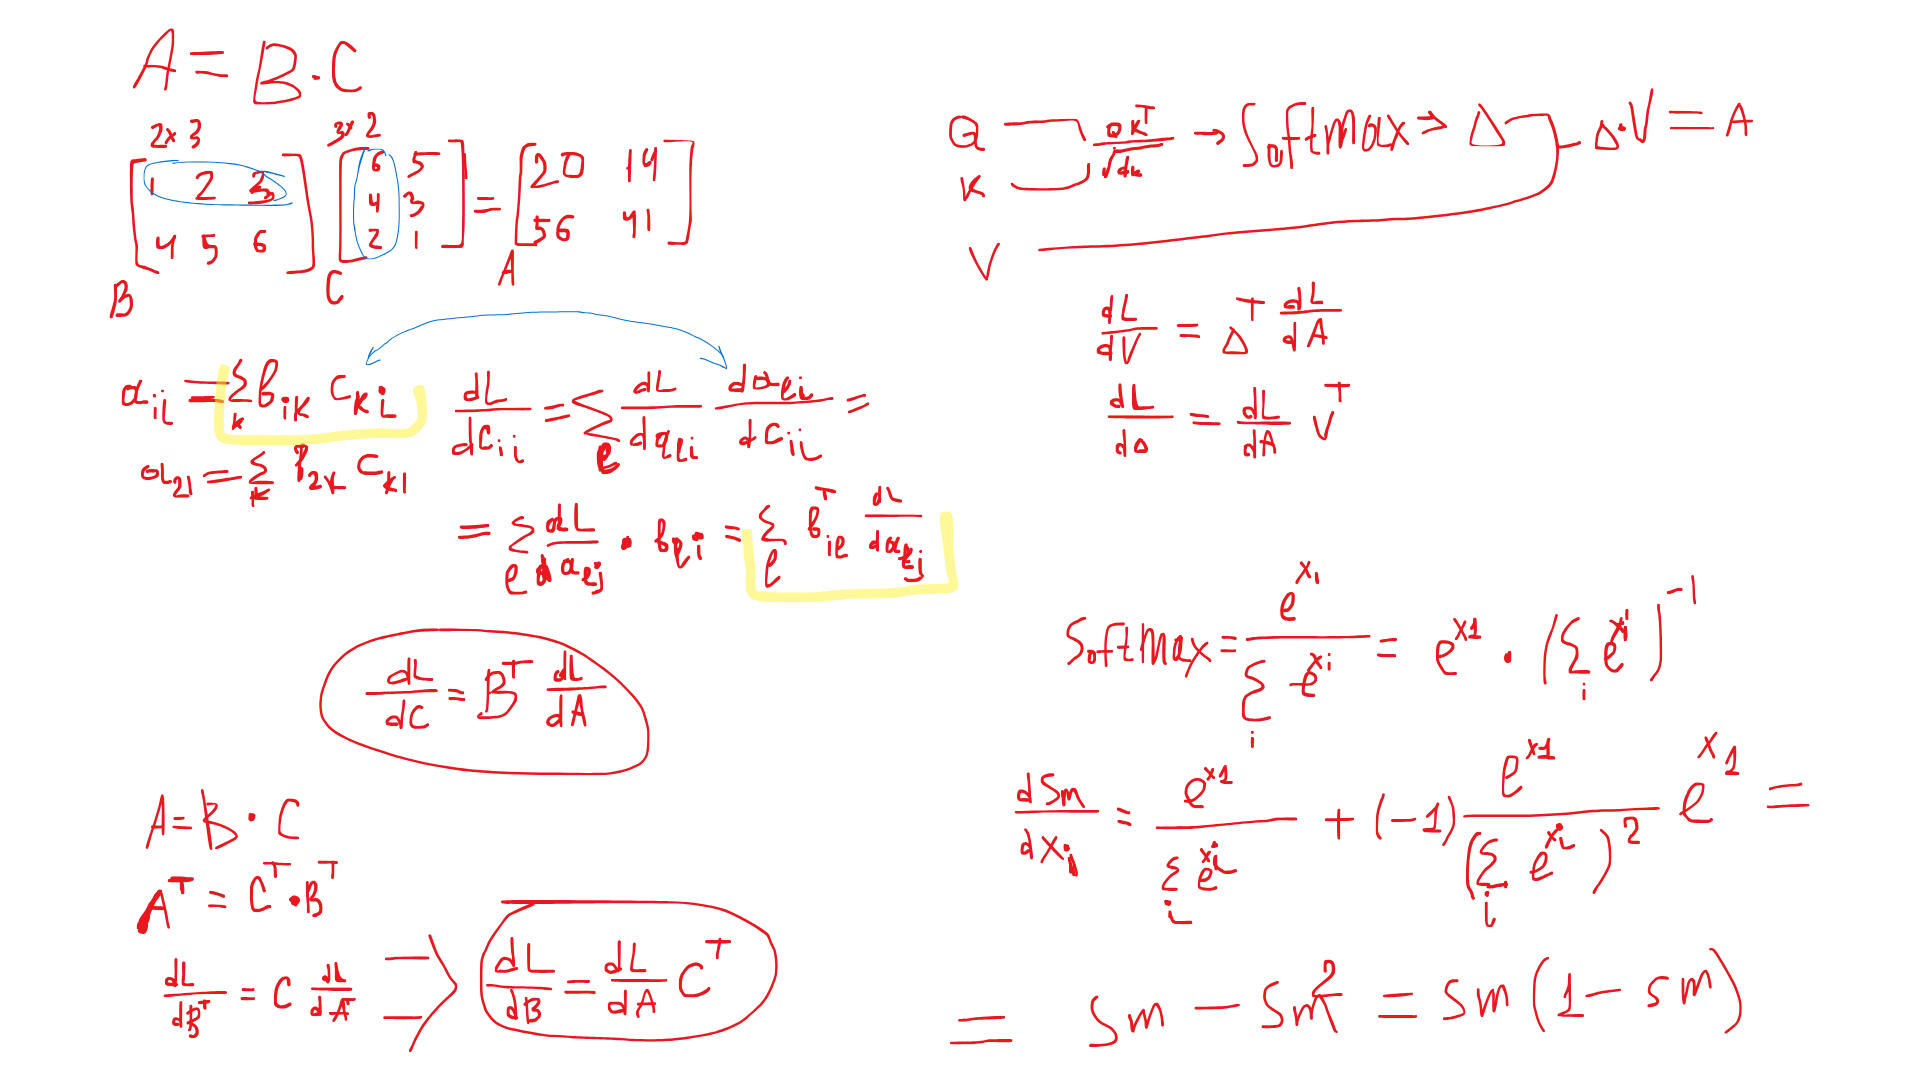 A = B · C
2x3 3x2
[1 2 3] [6 5] = [20 14]
[4 5 6] [4 3] [56 41]
[2 1]
B C A
a_il = Σ_k b_ik c_ki
a_21 = Σ_k b_2k c_k1
dL/dC_ij = Σ_e dL/da_ei da_ei/dC_ij =
= Σ_e dL/da_ej · b_ei = Σ_e b^T_ie dL/da_ej
dL/dC = B^T dL/dA
A = B · C
A^T = C^T · B^T
dL/dB^T = C dL/dA^T ⇒ dL/dB = dL/dA C^T
Q K QK^T/√dk → Softmax → Δ Δ·V = A
V
dL/dV = Δ^T dL/dA
dL/dΔ = dL/dA V^T
Softmax = e^x1 / Σ_i e^xi = e^x1 · (Σ_i e^xi)^-1
dSm/dxi = e^x1 / Σ_i e^xi + (-1) e^x1 / (Σ_i e^xi)^2 e^x1 =
= Sm - Sm^2 = Sm(1 - Sm)